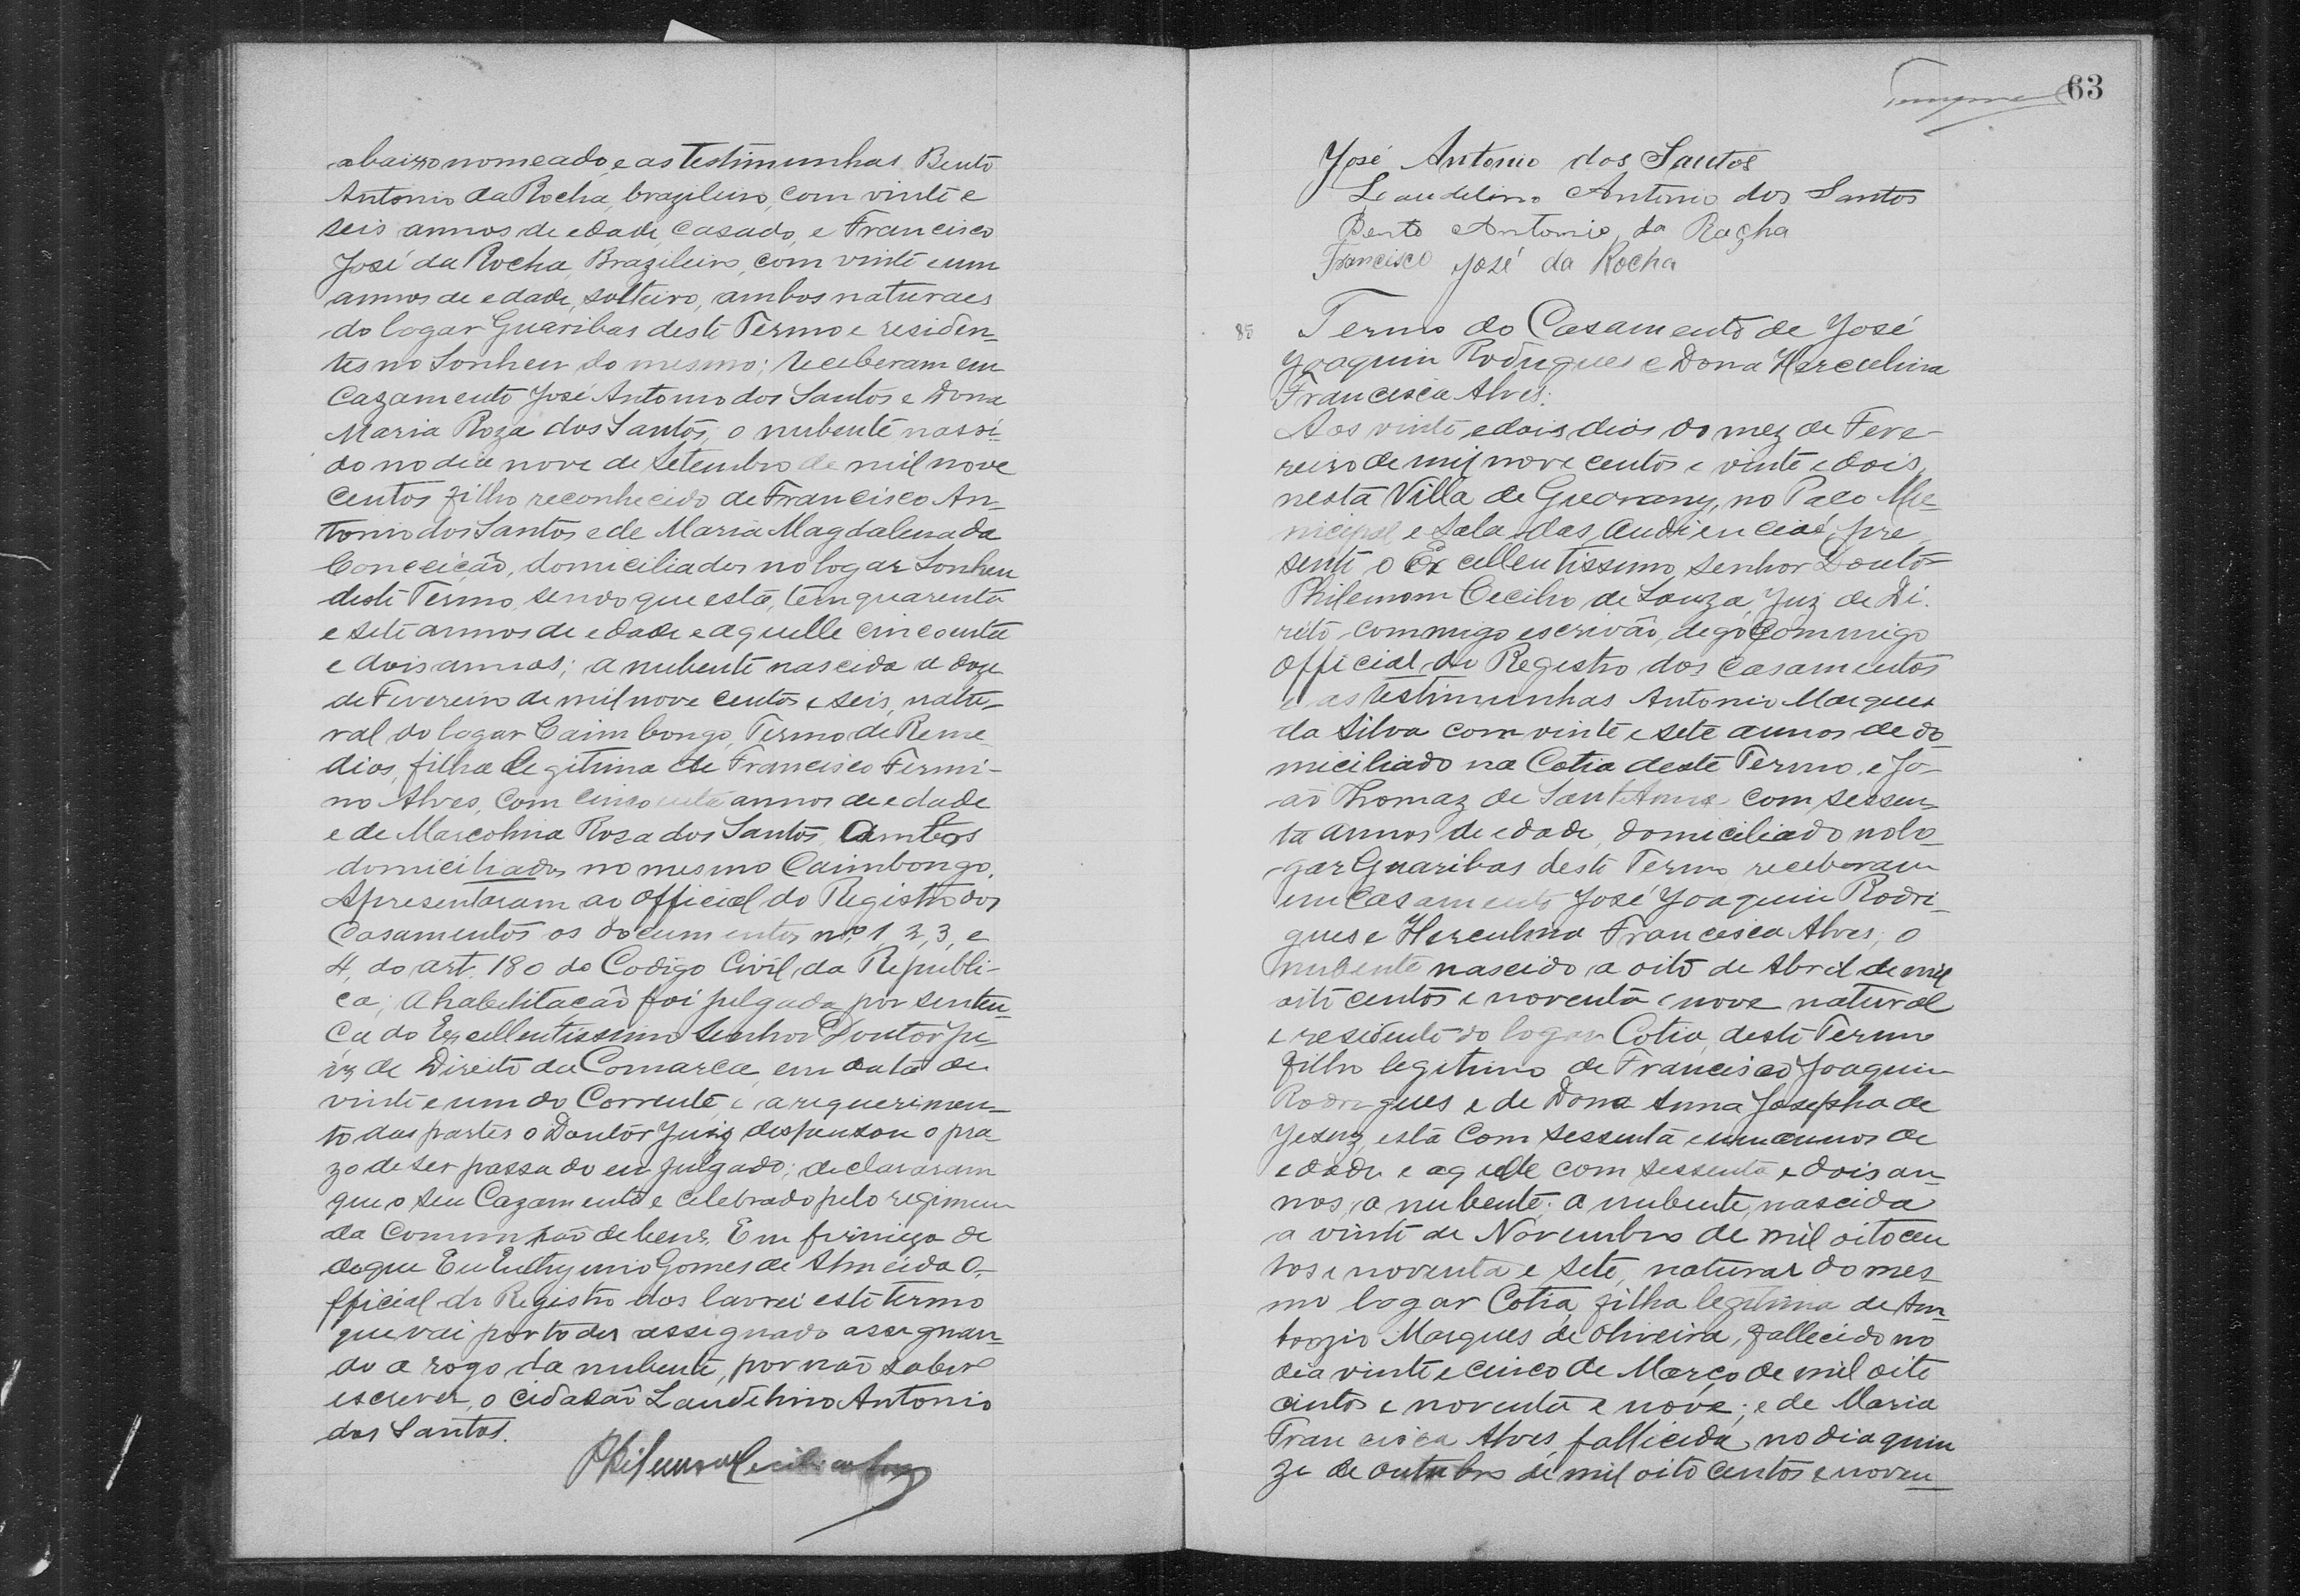 abaixo nomeado, e as testimunhas Bento
Antonio da Rocha, brazileiro, com vinte e
seis annos de edade, casado, e Francisco
José da Rocha, Brazileiro, com vinte e um
annos de edade, solteiro, ambos naturaes
do logar Guaribas deste Termo e residen-
tes no Sonhen do mesmo; receberam em
Cazamento José Antonio dos Santos e Dona
Maria Roza dos Santos; o nubente nasci-
do no dia nove de Setembro de mil nove
centos filho reconhecido de Francisco An-
tonio dos Santos e de Maria Magdalena da
Conceição, domiciliados no logar Sonhen
deste Termo, sendo que esta, tem quarenta
e sete annos de edade e aquelle cincoenta
e dois annos; a nubente nascida a doze
de Fevereiro de mil nove centos e seis, natu-
ral do logar Caimbongo, Termo de Reme-
dios, filha legitima de Francisco Firmi-
no Alves, com cincoenta annos de edade
e de Marcolina Roza dos Santos, ambos
domiciliados no mesmo Caimbongo.
Apresentaram ao official do Registro dos
Casamentos os documentos nos. 1, 2, 3, e
4, do art. 180 do Codigo Civil da Republi-
ca; a habilitação foi julgada por senten-
ça do Excellentissimo Senhor Doutor Ju-
iz de Direito da Comarca, em data de
vinte e um do Corrente, e a requerimen-
to das partes o Doutor Juiz dispensou o pra-
zo de ser passado em julgado; declararam
que o seu Cazamento e celebrado pelo regimen
da Communhão de bens. Em firmeza de
do que Eu Euthymio Gomes de Almeida O-
fficial do Registro dos lavrei este termo
que vai por todos assignado assignan-
do a rogo da nubente, por não saber
escrever, o cidadão Laudelino Antonio
dos Santos.
Philemom Cecilio de Souza
63
José Antonio dos Santos
Leaudelino Antonio dos Santos
Bento Antonio da Rocha
Francisco José da Rocha
85 Termo do Casamento de José
Joaquim Rodrigues e Dona Herculina
Francisca Alves.
Aos vinte e dois dias do mez de Feve-
reiro de mil nove centos e vinte e dois,
nesta Villa de Guarany, no Paço Mu-
nicipal e Sala das Audiencias, pre-
sente o Excellentissimo Senhor Doutor
Philemom Cecilio de Souza, Juiz de Di-
reito commigo escrivão, digo Commigo
official do Registro dos Casamentos
e as testimunhas Antonio Marques
da Silva com vinte e sete annos de do-
miciliado na Cotia deste Termo, e Jo-
ão Thomaz de Sant'Anna com sessen-
ta annos de edade, domiciliado no lo-
gar Guaribas deste Termo receberam
em casamento José Joaquim Rodri-
gues e Herculina Francisca Alves; o
nubente nascido a oito de Abril de mil
oito centos e noventa e nove natural
e residente do logar Cotia, deste Termo
filho legitimo de Francisco Joaquim
Rodrigues e de Dona Anna Josepha de
Jesuz esta com sessenta e um annos de
edade e aquelle com sessenta e dois an-
nos, a nubente; a nubente, nascida
a vinte de Novembro de mil oito cen
tos e noventa e sete, natural do mes-
mo logar Cotia, filha legitima de Am-
brozio Marques de Oliveira, fallecido no
dia vinte e cinco de Março de mil oito
centos e noventa e nove; e de Maria
Francisca Alves, fallicida, no dia quin
ze de outubro de mil oito centos e noven-